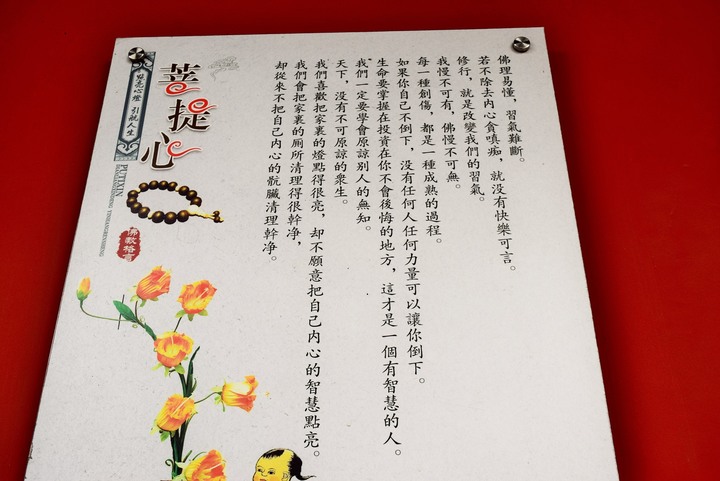 佛理易懂，習氣難斷。
若不除去内心貪嗔痴，就没有快樂可言。
修行，就是改變我們的習氣。
我慢不可有，佛慢不可無。
每一種創傷，都是一種成熟的過程。
如果你自己不倒下，没有任何人任何力量可以讓你倒下。
生命要掌握在投資在你不會後悔的地方，這才是一個有智慧的人。
我們一定要學會原諒别人的無知。
天下，没有不可原諒的衆生。
我們喜歡把家裏的燈點得很亮，却不願意把自己内心的智慧點亮。
我們會把家裏的厠所清理得很幹净，
却從來不把自己内心的骯臟清理幹净。
菩提心
點亮心燈 引航人生
PUTIXIN
佛教格言